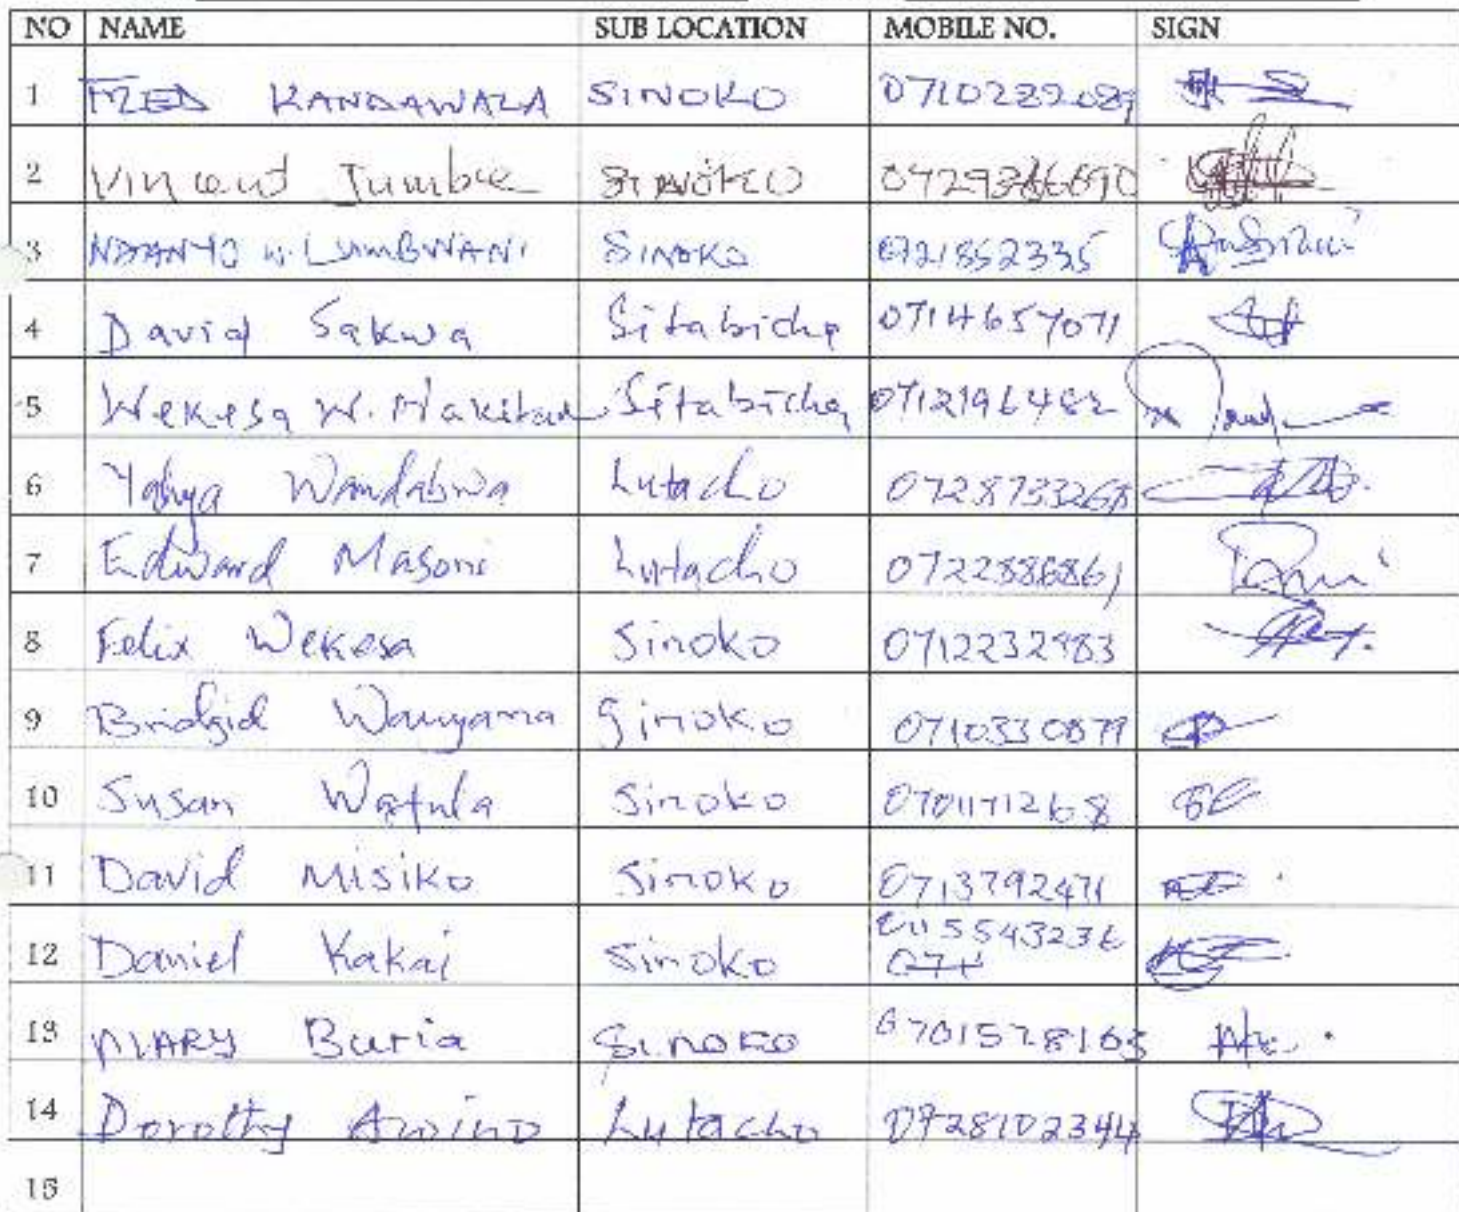 NO NAME SUB LOCATION MOBILE NO. SIGN
1 FRED KANDAWALA SINOKO 0710282089
2 Vincent Jumbe SINOKO
3 W. LUMBWANI SINOKO 0721852335
4 David Sakwa Sitabicha 0714657071
5 Wekesa W. Sitabicha 0712196482
6 Yahya Wandabwa Lutacho 0728733268
7 Edward Masoni Lutacho 0722886861
8 Felix Wekesa Sinoko 0712232983
9 Bridgid Wanyama Sinoko 0710330879
10 Susan Wafula Sinoko 0701171268
11 David Misiko Sinoko 0713792471
12 Daniel Kakai Sinoko 0115543236
13 MARY Buria Sinoko 0701528165
14 Dorothy Awino Lutacho 0728102344
15